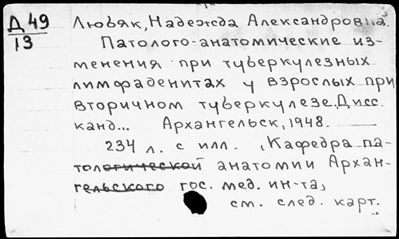 Д 49
13
Любяк, Надежда Александровна.
Патолого-анатомические из-
менения при туберкулезных
лимфаденитах у взрослых при
вторичном туберкулезе. Дисс.
канд... Архангельск, 1948.
234 л. с илл. (Кафедра па-
тологической анатомии Архан-
гельского гос. мед. ин-та)
см. след. карт.